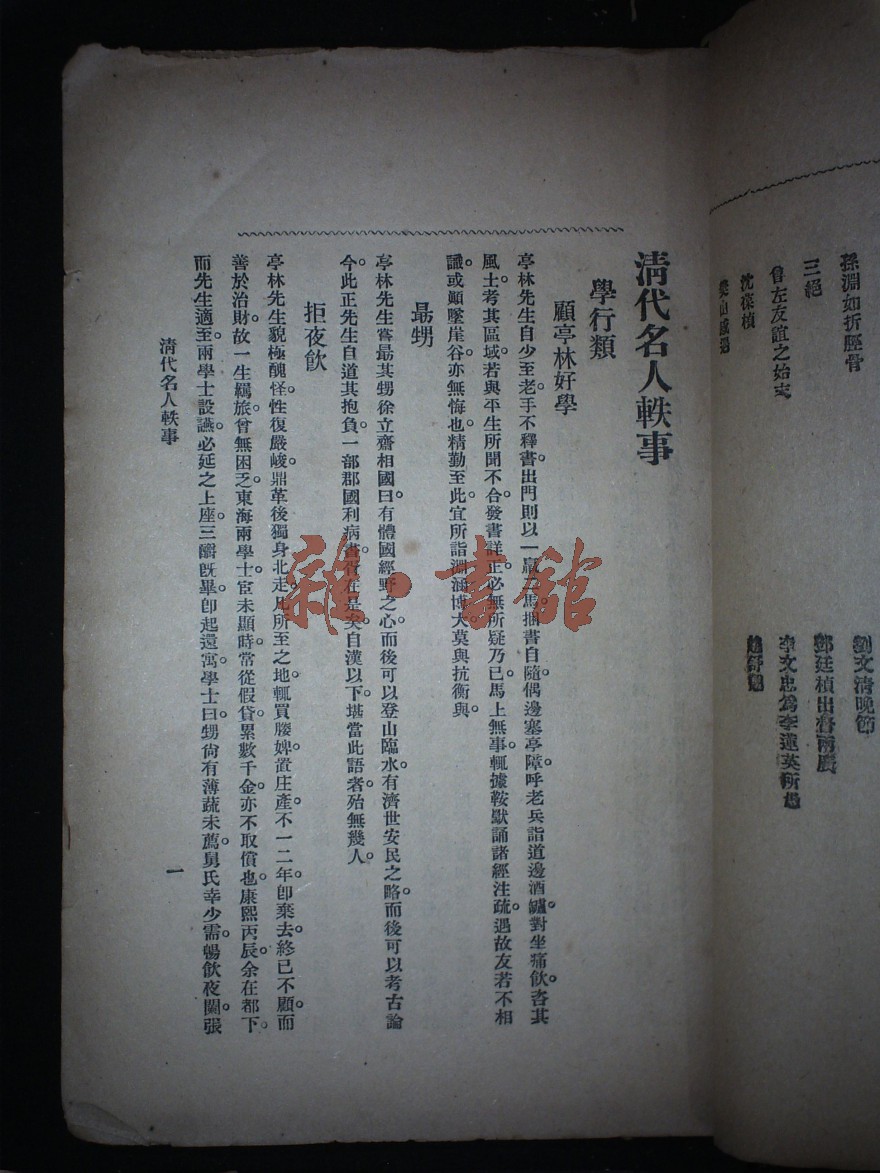 孫淵如折脛骨
三絕
曾左友誼之始末
沈葆楨
劉文清晚節
鄧廷楨出督兩廣
李文忠為李蓮英所
清代名人軼事
學行類
顧亭林好學
亭林先生自少至老手不釋書出門則以一騾馬捆書自隨偶邊塞亭障呼老兵詣道邊酒壚對坐痛飲咨其
風土考其區域若與平生所聞不合發書詳正必無所疑乃已馬上無事輒據鞍默誦諸經注疏遇故友若不相
識或顚墜崖谷亦無悔也精勤至此宜所詣淵涵博大莫與抗衡與
勗甥
亭林先生嘗勗其甥徐立齋相國曰有體國經野之心而後可以登山臨水有濟世安民之略而後可以考古論
今此正先生自道其抱負一部郡國利病書在是矣自漢以下堪當此語者殆無幾人
拒夜飲
亭林先生貌極醜怪性復嚴峻鼎革後獨身北走凡所至之地輒買媵婢置庄產不一二年卽棄去終已不顧而
善於治財故一生羈旅曾無困乏東海兩學士宦未顯時常從假貸累數千金亦不取償也康熙丙辰余在都下
而先生適至兩學士設讌必延之上座三釂旣畢卽起還寓學士曰甥尙有薄蔬未薦舅氏幸少需暢飲夜闌張
清代名人軼事
一
雜·書館